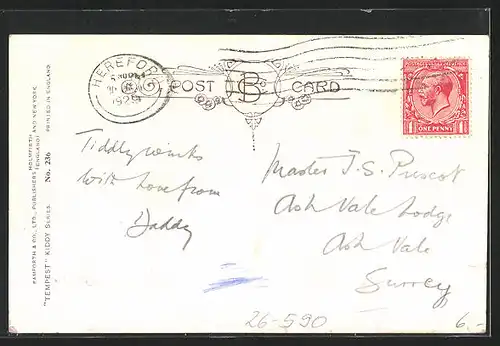 HEREFORD
1925
POST CARD
B
ONE PENNY
1 1
Tiddlywinks
With Love from
Daddy
Master J. S. Prescot
Ash Vale Lodge
Ash Vale
Surrey
BAMFORTH & CO., LTD., PUBLISHERS, HOLMFIRTH (ENGLAND) AND NEW YORK
PRINTED IN ENGLAND.
"TEMPEST" KIDDY SERIES. No. 236
26-590
6.-